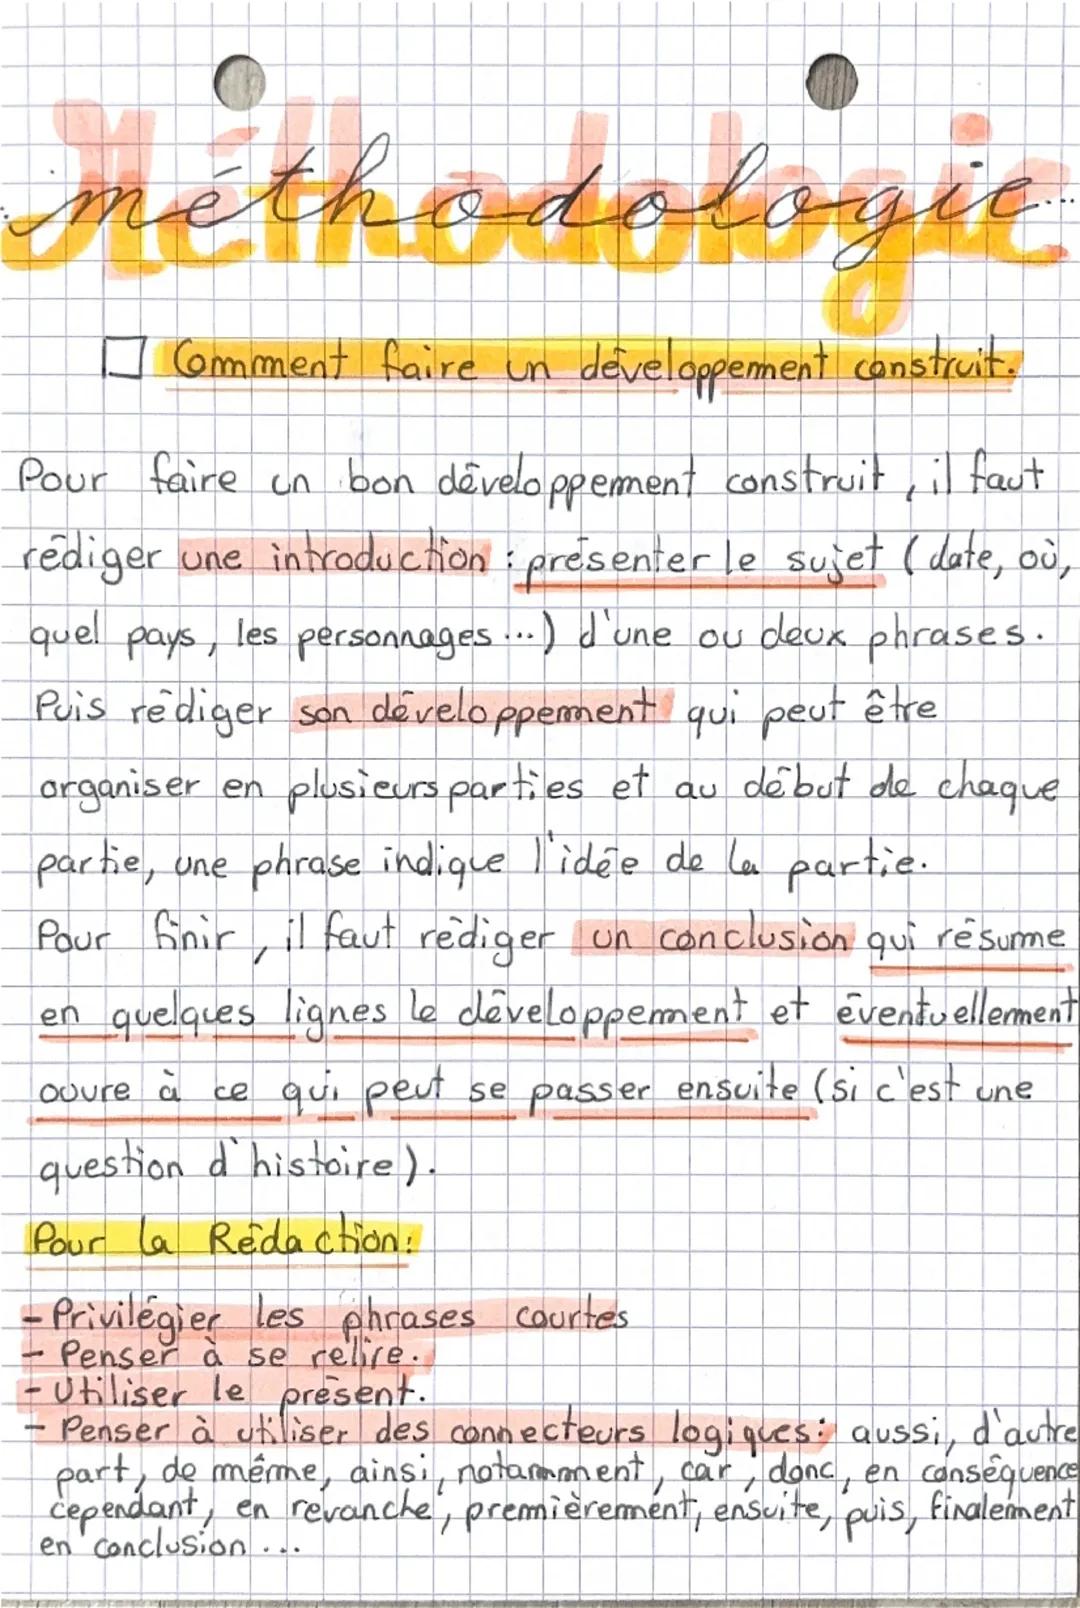 méthodologie...
Comment faire un développement construit.
Pour faire un bon développement construit, il faut
rédiger une introduction : présenter le sujet (date, où,
quel pays, les personnages ...) d'une ou deux phrases.
Puis rédiger son développement qui peut être
organiser en plusieurs parties et au début de chaque
partie, une phrase indique l'idée de la partie.
Pour finir, il faut rédiger un conclusion qui résume
en quelques lignes le développement et éventuellement
ouvre à ce qui peut se passer ensuite (si c'est une
question d'histoire).
Pour la Rédaction:
- Privilégier les phrases courtes
- Penser à se relire.
- Utiliser le présent.
- Penser à utiliser des connecteurs logiques: aussi, d'autre
part, de même, ainsi, notamment, car, donc, en conséquence
cependant, en revanche, premièrement, ensuite, puis, finalement
en conclusion ...